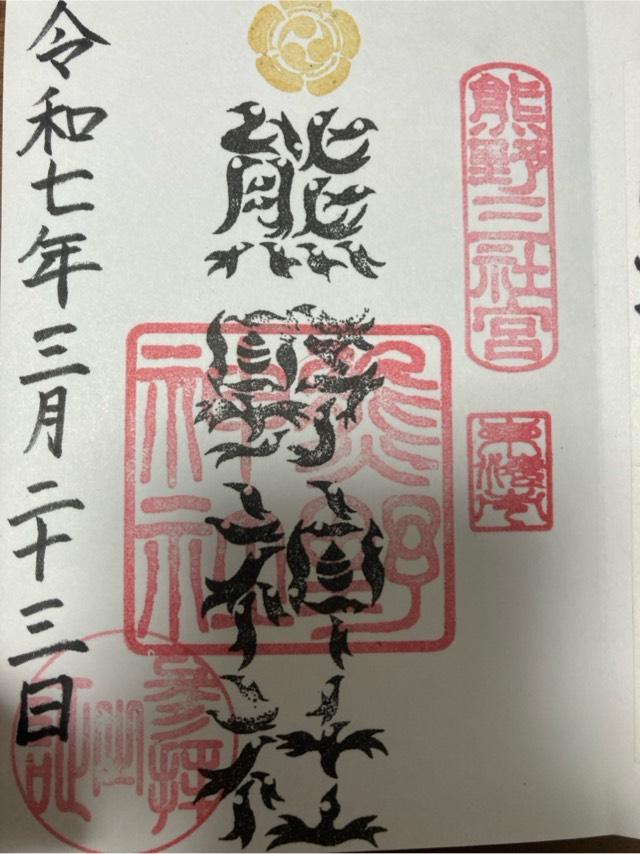 熊野三社宮
熊野神社
熊野神社
令和七年三月二十三日
参拝
証